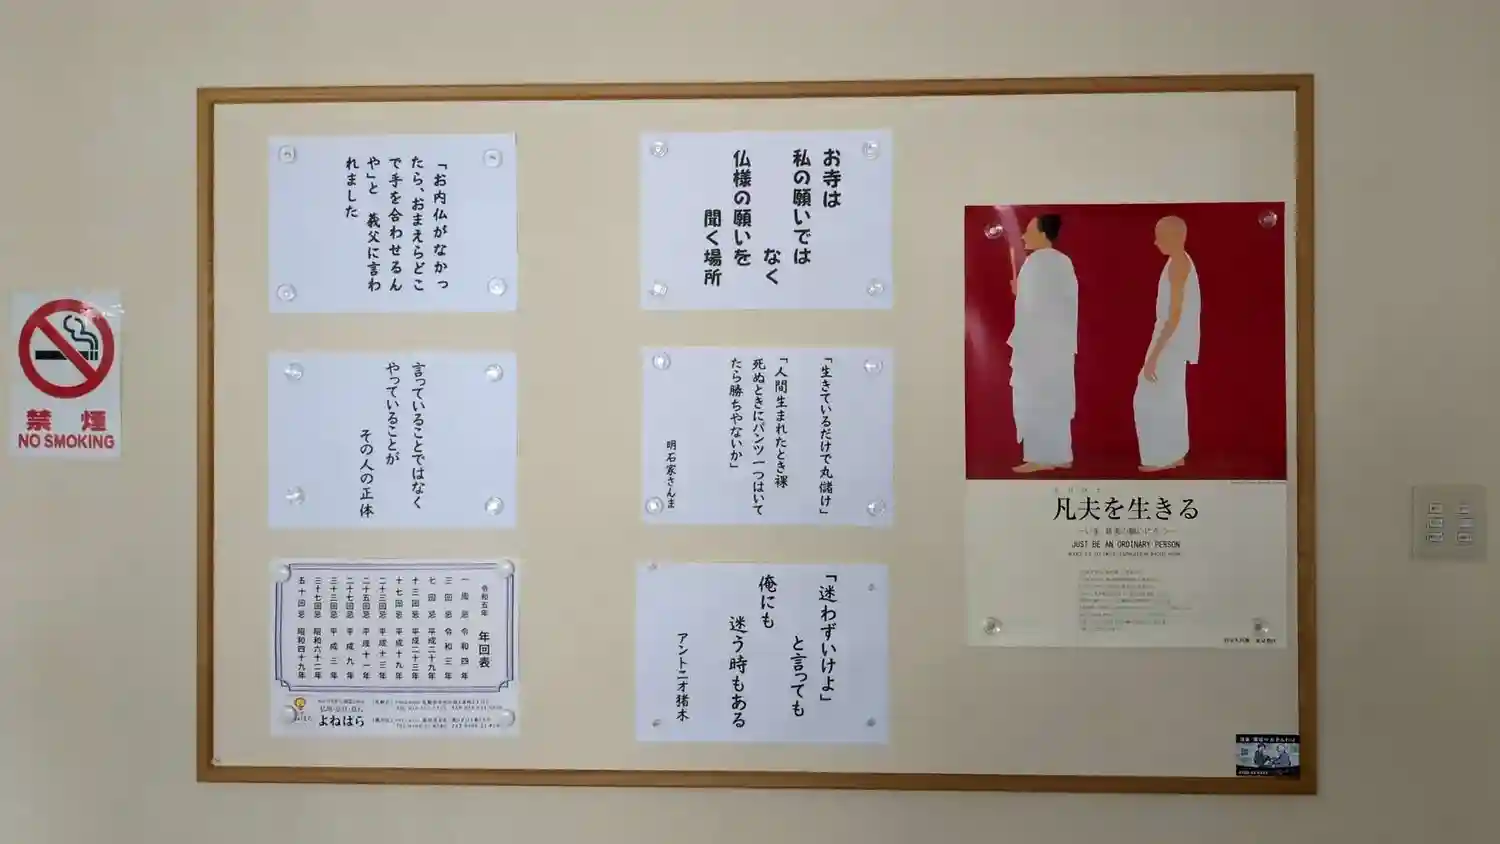 「お内仏がなかっ
たら、おまえらどこ
で手を合わせるん
や」と 義父に言わ
れました
お寺は
私の願いでは
なく
仏様の願いを
聞く場所
言っていることではなく
やっていることが
その人の正体
「生きているだけで丸儲け」
「人間生まれたとき裸
死ぬときにパンツ一つはいて
たら勝ちやないか」
明石家さんま
令和五年 年回表
一周忌 令和四年
三回忌 令和三年
七回忌 平成二十九年
十三回忌 平成二十三年
十七回忌 平成十九年
二十三回忌 平成十三年
二十五回忌 平成十一年
二十七回忌 平成九年
三十三回忌 平成三年
三十七回忌 昭和六十二年
五十回忌 昭和四十九年
よねはら
「迷わずいけよ」
と言っても
俺にも
迷う時もある
アントニオ猪木
凡夫を生きる
JUST BE AN ORDINARY PERSON
禁煙
NO SMOKING